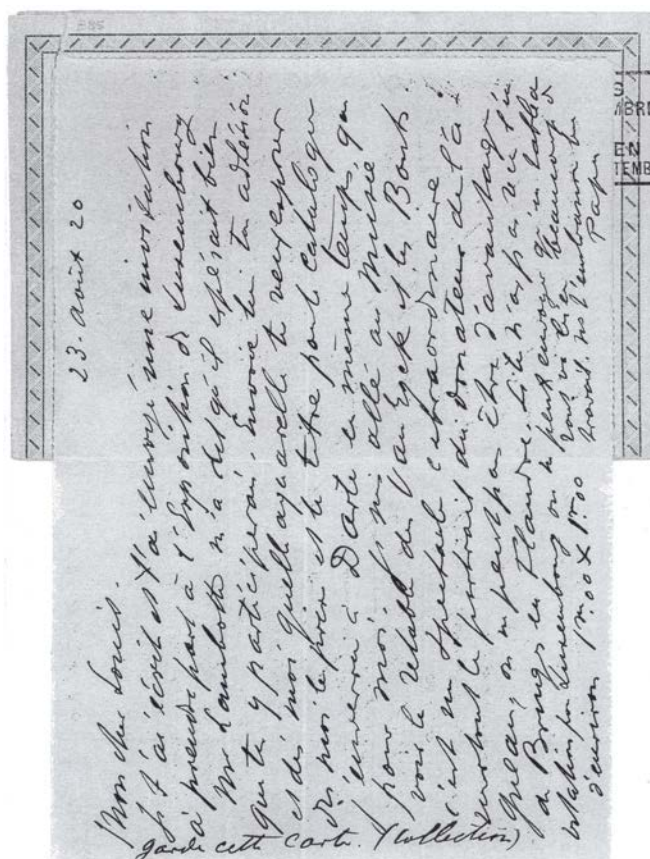 E85
23. août 20
Mon cher Louis.
Je t'ai écrit et t'ai envoyé une invitation
à prendre part à l'Exposition de Luxembourg
Mr Lambotte m'a dit qu'il espérait bien
que tu y participerai. Envoie lui ton adhésion
et dis moi quelle aquarelle tu veux exposer
dis moi le prix et le titre pour le catalogue
j'enverrai à Darte en même temps que
pour moi. Je suis allé au musée
voir le retable des Van Eyck et les Bouts
c'est un spectacle extraordinaire
surtout le portrait du donateur de l'a
gneau, on ne peut pas être d'avantage
de Bruges en Flandre. Si tu n'as pas vu l'in
vitation pour Luxembourg on ne peut envoyer qu'un tableau
d'environ 1m00 x 1m00
tout va bien beaucoup de
travail. Je t'embrasse
Papa
garde cette carte. (collection)
S
MBRE
EN
TEMB